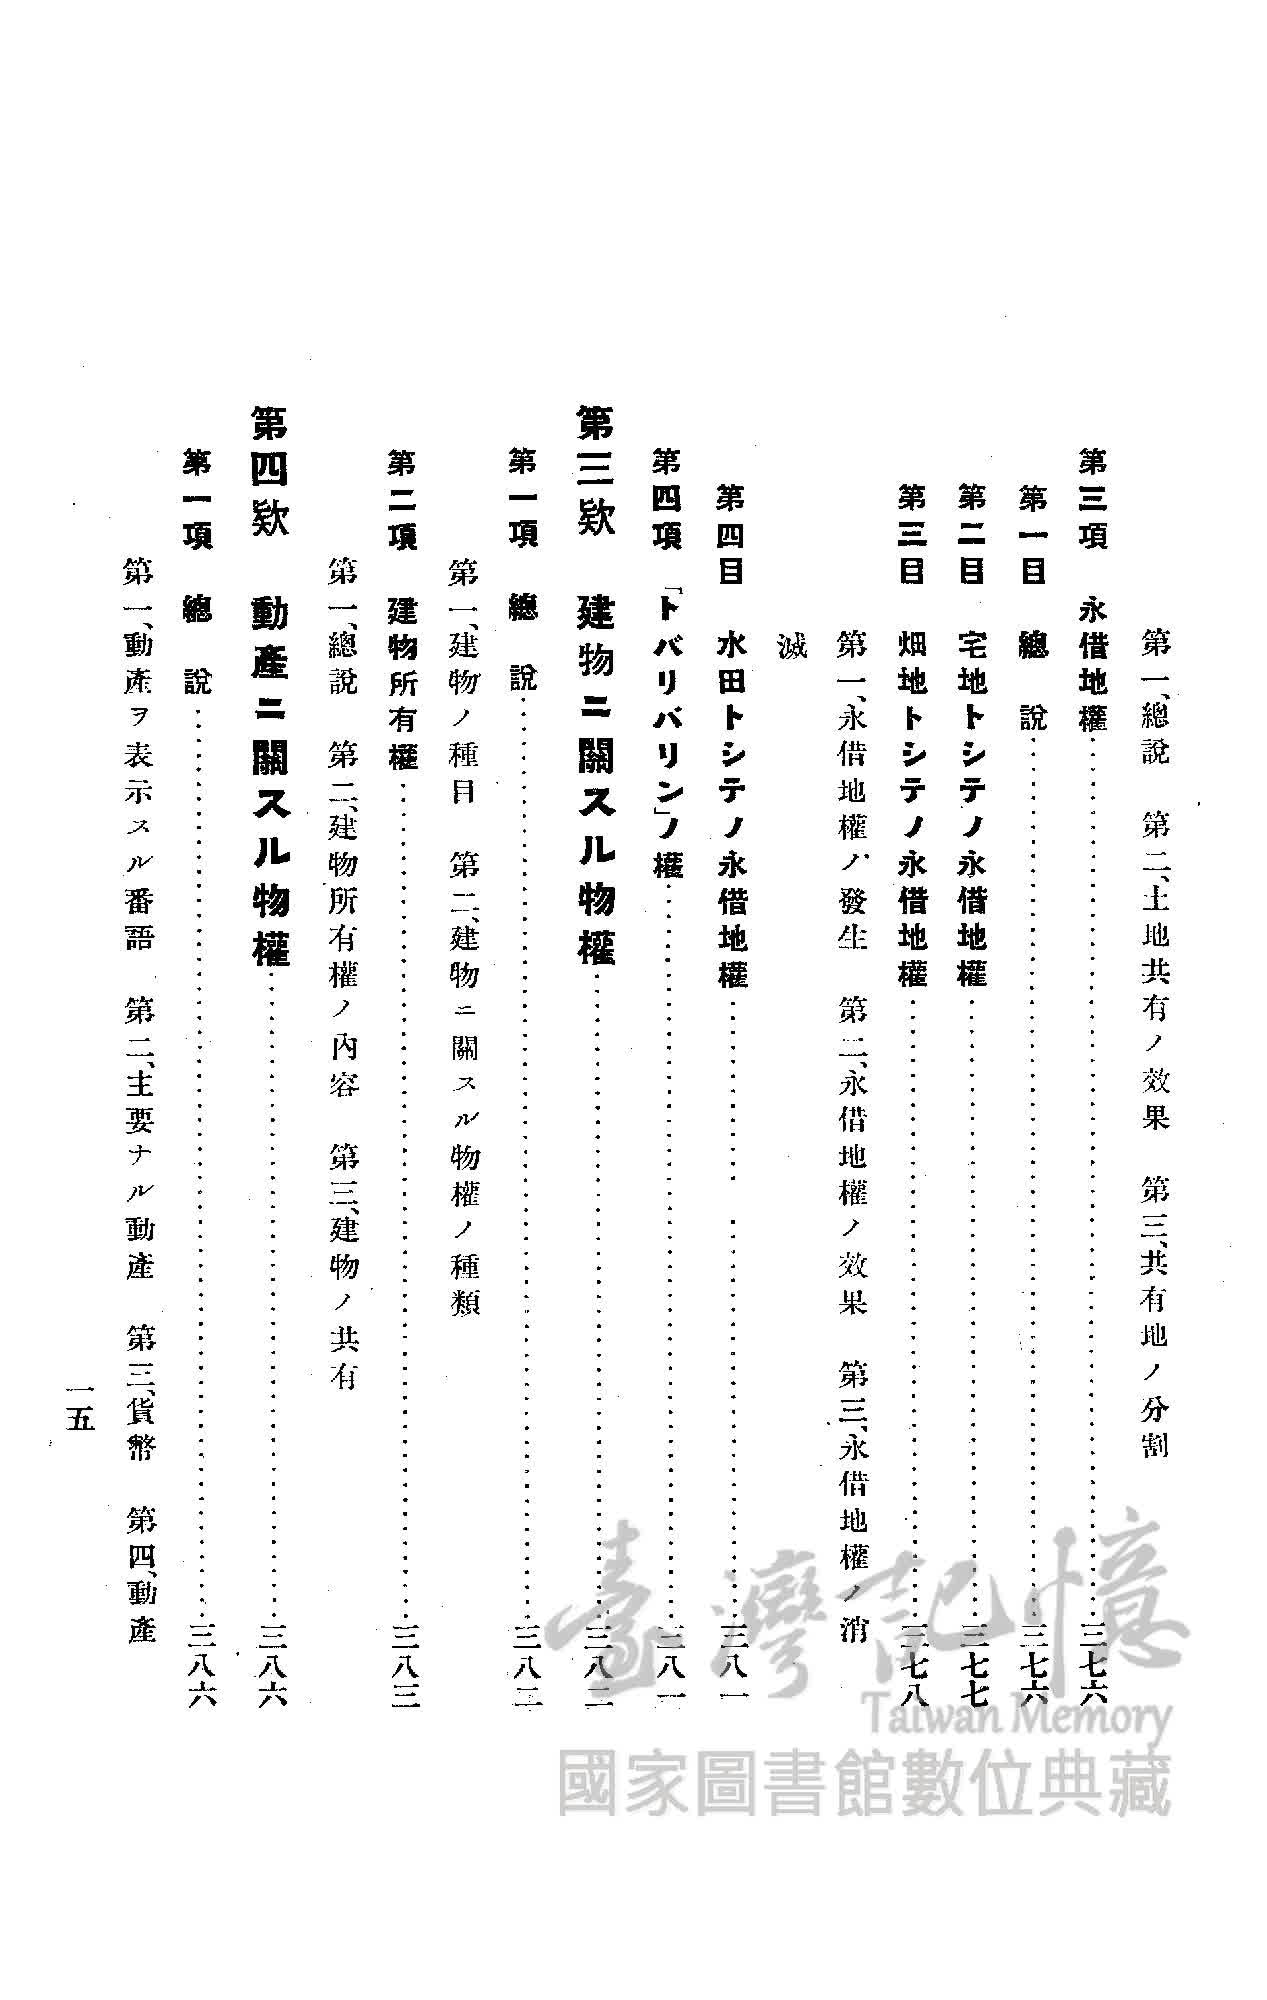 第一、總說　第二、土地共有ノ效果　第三、共有地ノ分割
第三項　永借地權……………三七六
第一目　總　說……………三七六
第二目　宅地トシテノ永借地權……………三七七
第三目　畑地トシテノ永借地權……………三七八
第一、永借地權ノ發生　第二、永借地權ノ效果　第三、永借地權ノ消
滅
第四目　水田トシテノ永借地權……………三八一
第四項　「トバリバリン」ノ權……………三八一
第三欵　建物ニ關スル物權……………三八二
第一項　總　說……………三八二
第一、建物ノ種目　第二、建物ニ關スル物權ノ種類
第二項　建物所有權……………三八三
第一、總說　第二、建物所有權ノ內容　第三、建物ノ共有
第四欵　動產ニ關スル物權……………三八六
第一項　總　說……………三八六
第一、動產ヲ表示スル番語　第二、主要ナル動產　第三、貨幣　第四、動產
一五
臺灣記憶
Taiwan Memory
國家圖書館數位典藏